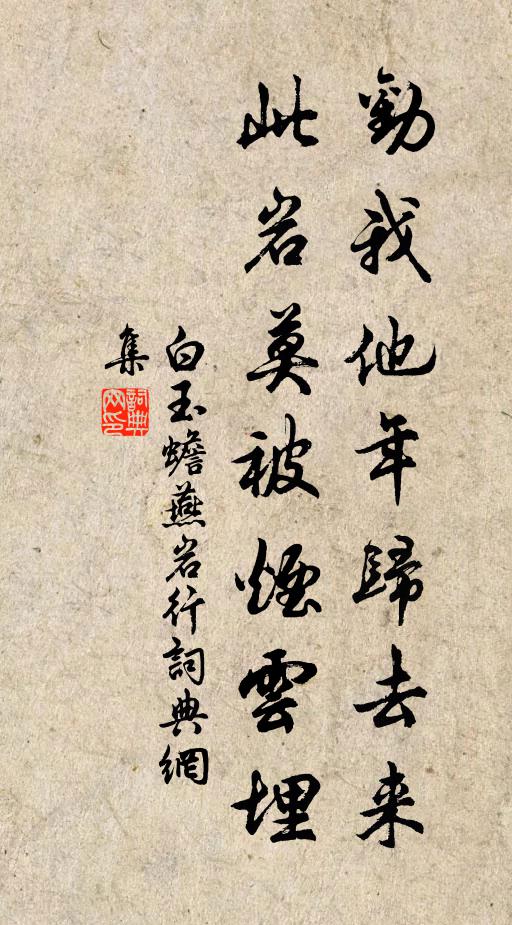 勸我他年歸去来
此岩莫被煙雲埋
白玉蟾燕岩行詞典網
集
詞典
网印